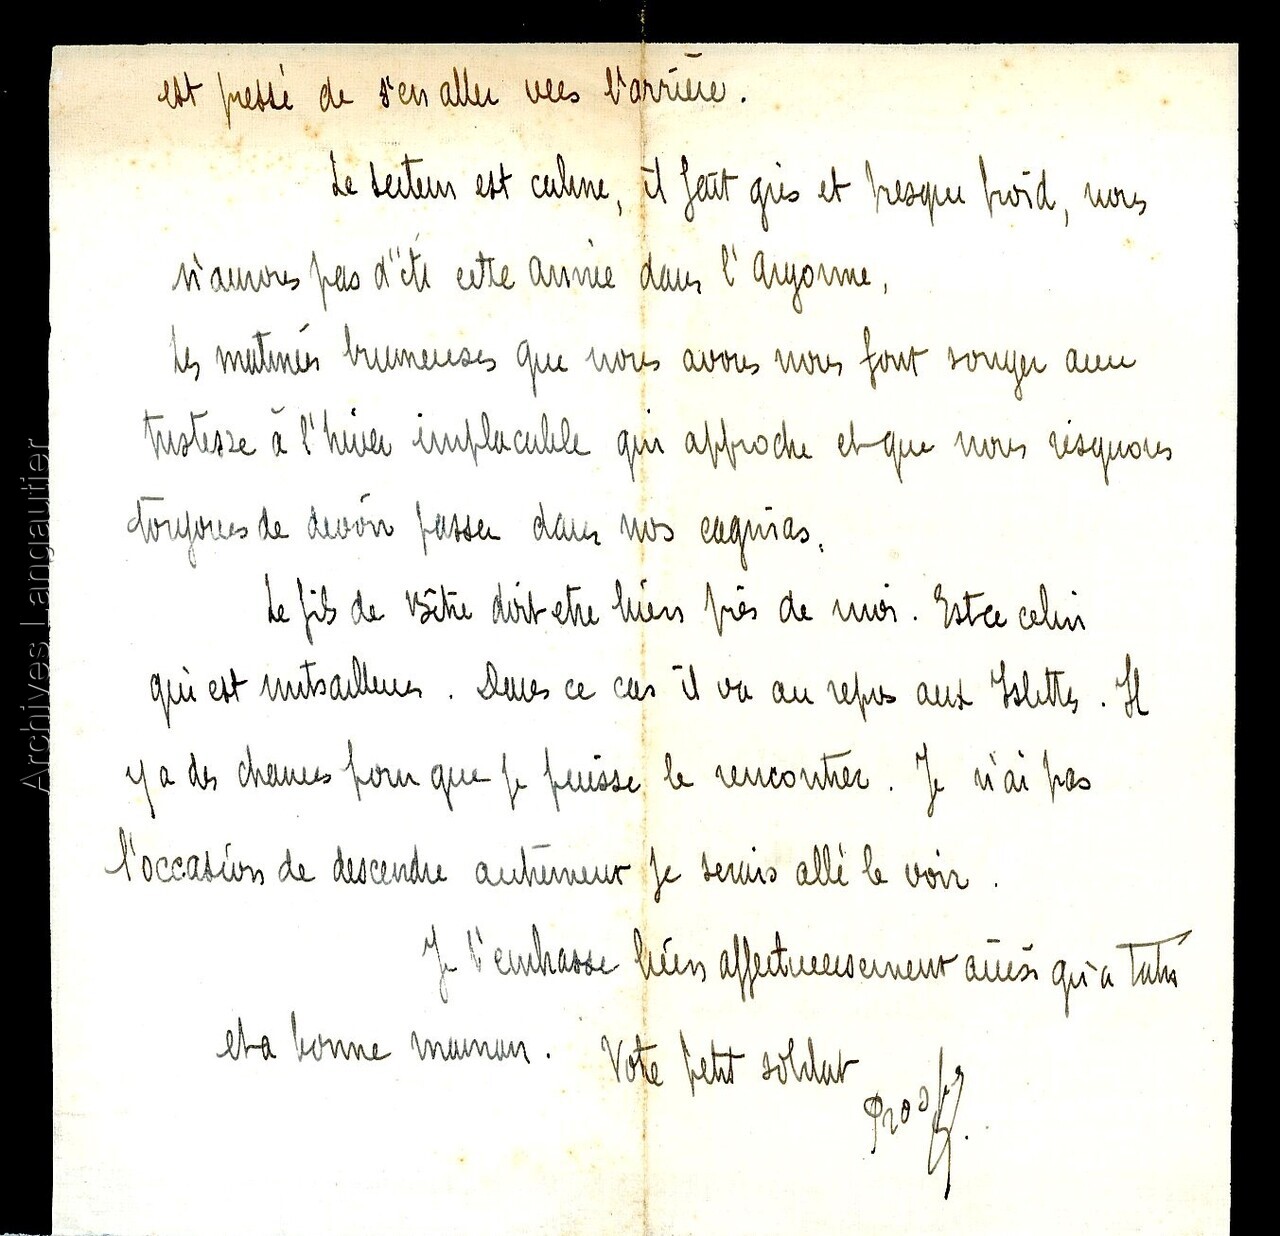 est pressé de s'en aller vers l'arrière.
Le secteur est calme, il fait gris et presque froid, nous
n'aurons pas d'été cette année dans l'Argonne,
Les matinées brumeuses que nous avons nous font songer avec
tristesse à l'hiver implacable qui approche et que nous risquons
toujours de devoir passer dans nos cagnias.
Le fils de doit etre bien près de moi. Est ce celui
qui est mitrailleur. Dans ce cas il va au repos aux Islettes. Il
y a des chances pour que je puisse le rencontrer. Je n'ai pas
l'occasion de descendre autrement je serais allé le voir.
Je t'embrasse bien affectueusement ainsi qu'a
et a bonne maman. Votre petit soldat
Archives Langautier